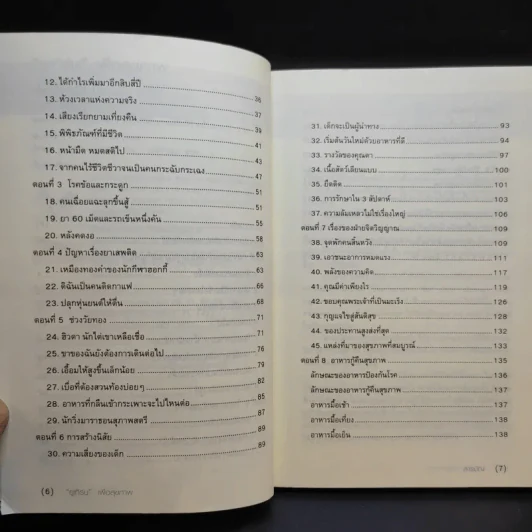 12. ได้กำไรเพิ่มมาอีกสิบสี่ปี
13. ห้วงเวลาแห่งความจริง 36
14. เสียงเรียกยามเที่ยงคืน 37
15. พิพิธภัณฑ์ที่มีชีวิต 39
16. หน้ามืด หมดสติไป 41
17. จากคนไร้ชีวิตชีวาจนเป็นคนกระฉับกระเฉง 43
47
ตอนที่ 3 โรคข้อและกระดูก 51
18. คนเฉื่อยแฉะลุกขึ้นสู้ 51
19. ยา 60 เม็ดและรถเข็นหนึ่งคัน 55
20. หลังคดงอ 58
ตอนที่ 4 ปัญหาเรื่องยาเสพติด 63
21. เหมืองทองคำของนักกีฬาฮอกกี้ 63
22. ดิฉันเป็นคนติดกาแฟ 66
23. ปลุกหุ่นยนต์ให้ตื่น 68
ตอนที่ 5 ช่วงวัยทอง 71
24. ฮิวดา นักไต่เขาเหลือเชื่อ 71
25. ขาของฉันยังต้องการเดินต่อไป 76
26. เอื้อมให้สูงขึ้นเล็กน้อย 79
27. เบื่อที่ต้องสวนท้องบ่อยๆ 82
28. อาหารที่กลืนเข้ากระเพาะจะไปไหนต่อ 85
29. นักวิ่งมาราธอนสุภาพสตรี 87
ตอนที่ 6 การสร้างนิสัย 89
30. ความเสี่ยงของเด็ก 89
(6)
31. เด็กจะเป็นผู้นำทาง 93
32. เริ่มต้นวันใหม่ด้วยอาหารที่ดี 94
33. รางวัลของคุณตา 97
34. เนื้อสัตว์เลียนแบบ 100
35. ยึดติด 101
36. การรักษาใน 3 สัปดาห์ 103
37. ความล้มเหลวไม่ใช่เรื่องใหญ่ 107
ตอนที่ 7 เรื่องของฝ่ายจิตวิญญาณ 109
38. จุดพักคนสิ้นหวัง 109
39. เอาชนะอาการหมดแรง 111
40. พลังของความคิด 117
41. คุณมีค่าเพียงไร 117
42. ขอบคุณพระเจ้าที่เป็นมะเร็ง 126
43. กุญแจไขสู่สันติสุข 129
44. ของประทานสูงส่งที่สุด 132
45. แหล่งที่มาของสุขภาพที่สมบูรณ์ 132
ตอนที่ 8 อาหารกู้คืนสุขภาพ 135
ลักษณะของอาหารป้องกันโรค 135
ลักษณะของอาหารกู้คืนสุขภาพ 136
อาหารมื้อเช้า 137
อาหารมื้อเที่ยง 138
อาหารมื้อเย็น 138
(7)